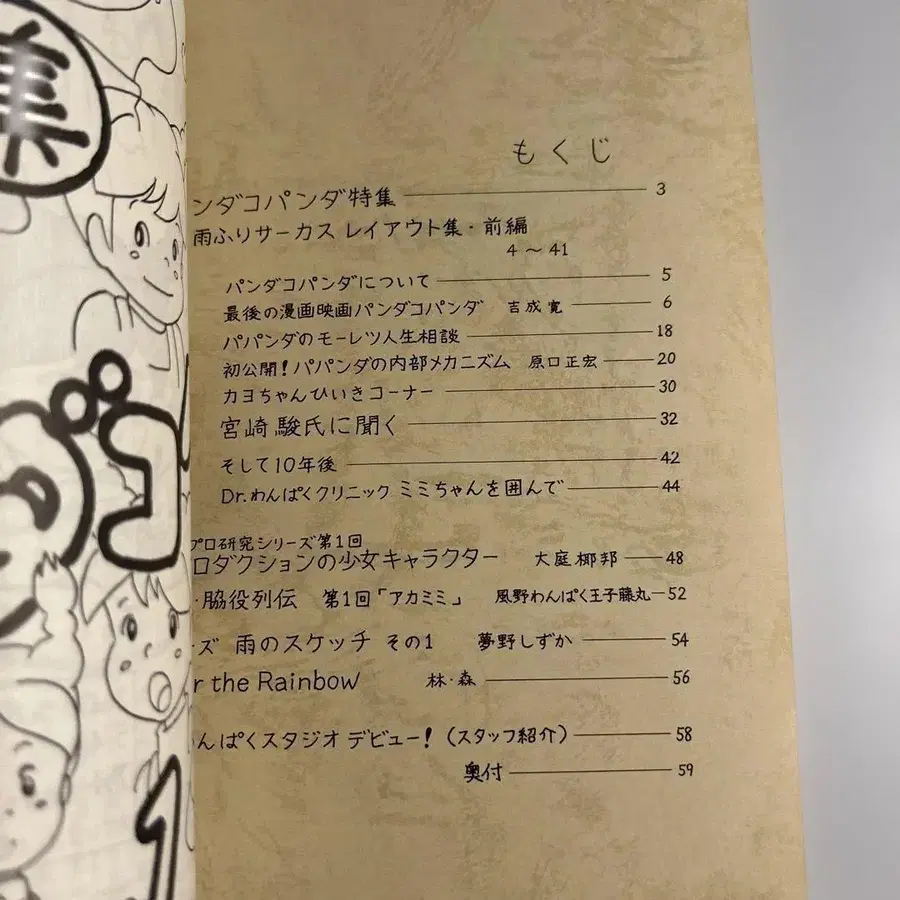 集
もくじ
ンダコパンダ特集 3
雨ふりサーカス レイアウト集・前編
4〜41
パンダコパンダについて 5
最後の漫画映画パンダコパンダ 吉成寛 6
パパンダのモーレツ人生相談 18
初公開!パパンダの内部メカニズム 原口正宏 20
カヨちゃんひいきコーナー 30
宮崎駿氏に聞く 32
そして10年後 42
Dr.わんぱくクリニック ミミちゃんを囲んで 44
プロ研究シリーズ第1回
ロダクションの少女キャラクター 大庭椰邦 48
・脇役列伝 第1回「アカミミ」 風野わんぱく王子藤丸 52
ーズ 雨のスケッチ その1 夢野しずか 54
r the Rainbow 林・森 56
んぱくスタジオ デビュー!(スタッフ紹介) 58
奥付 59